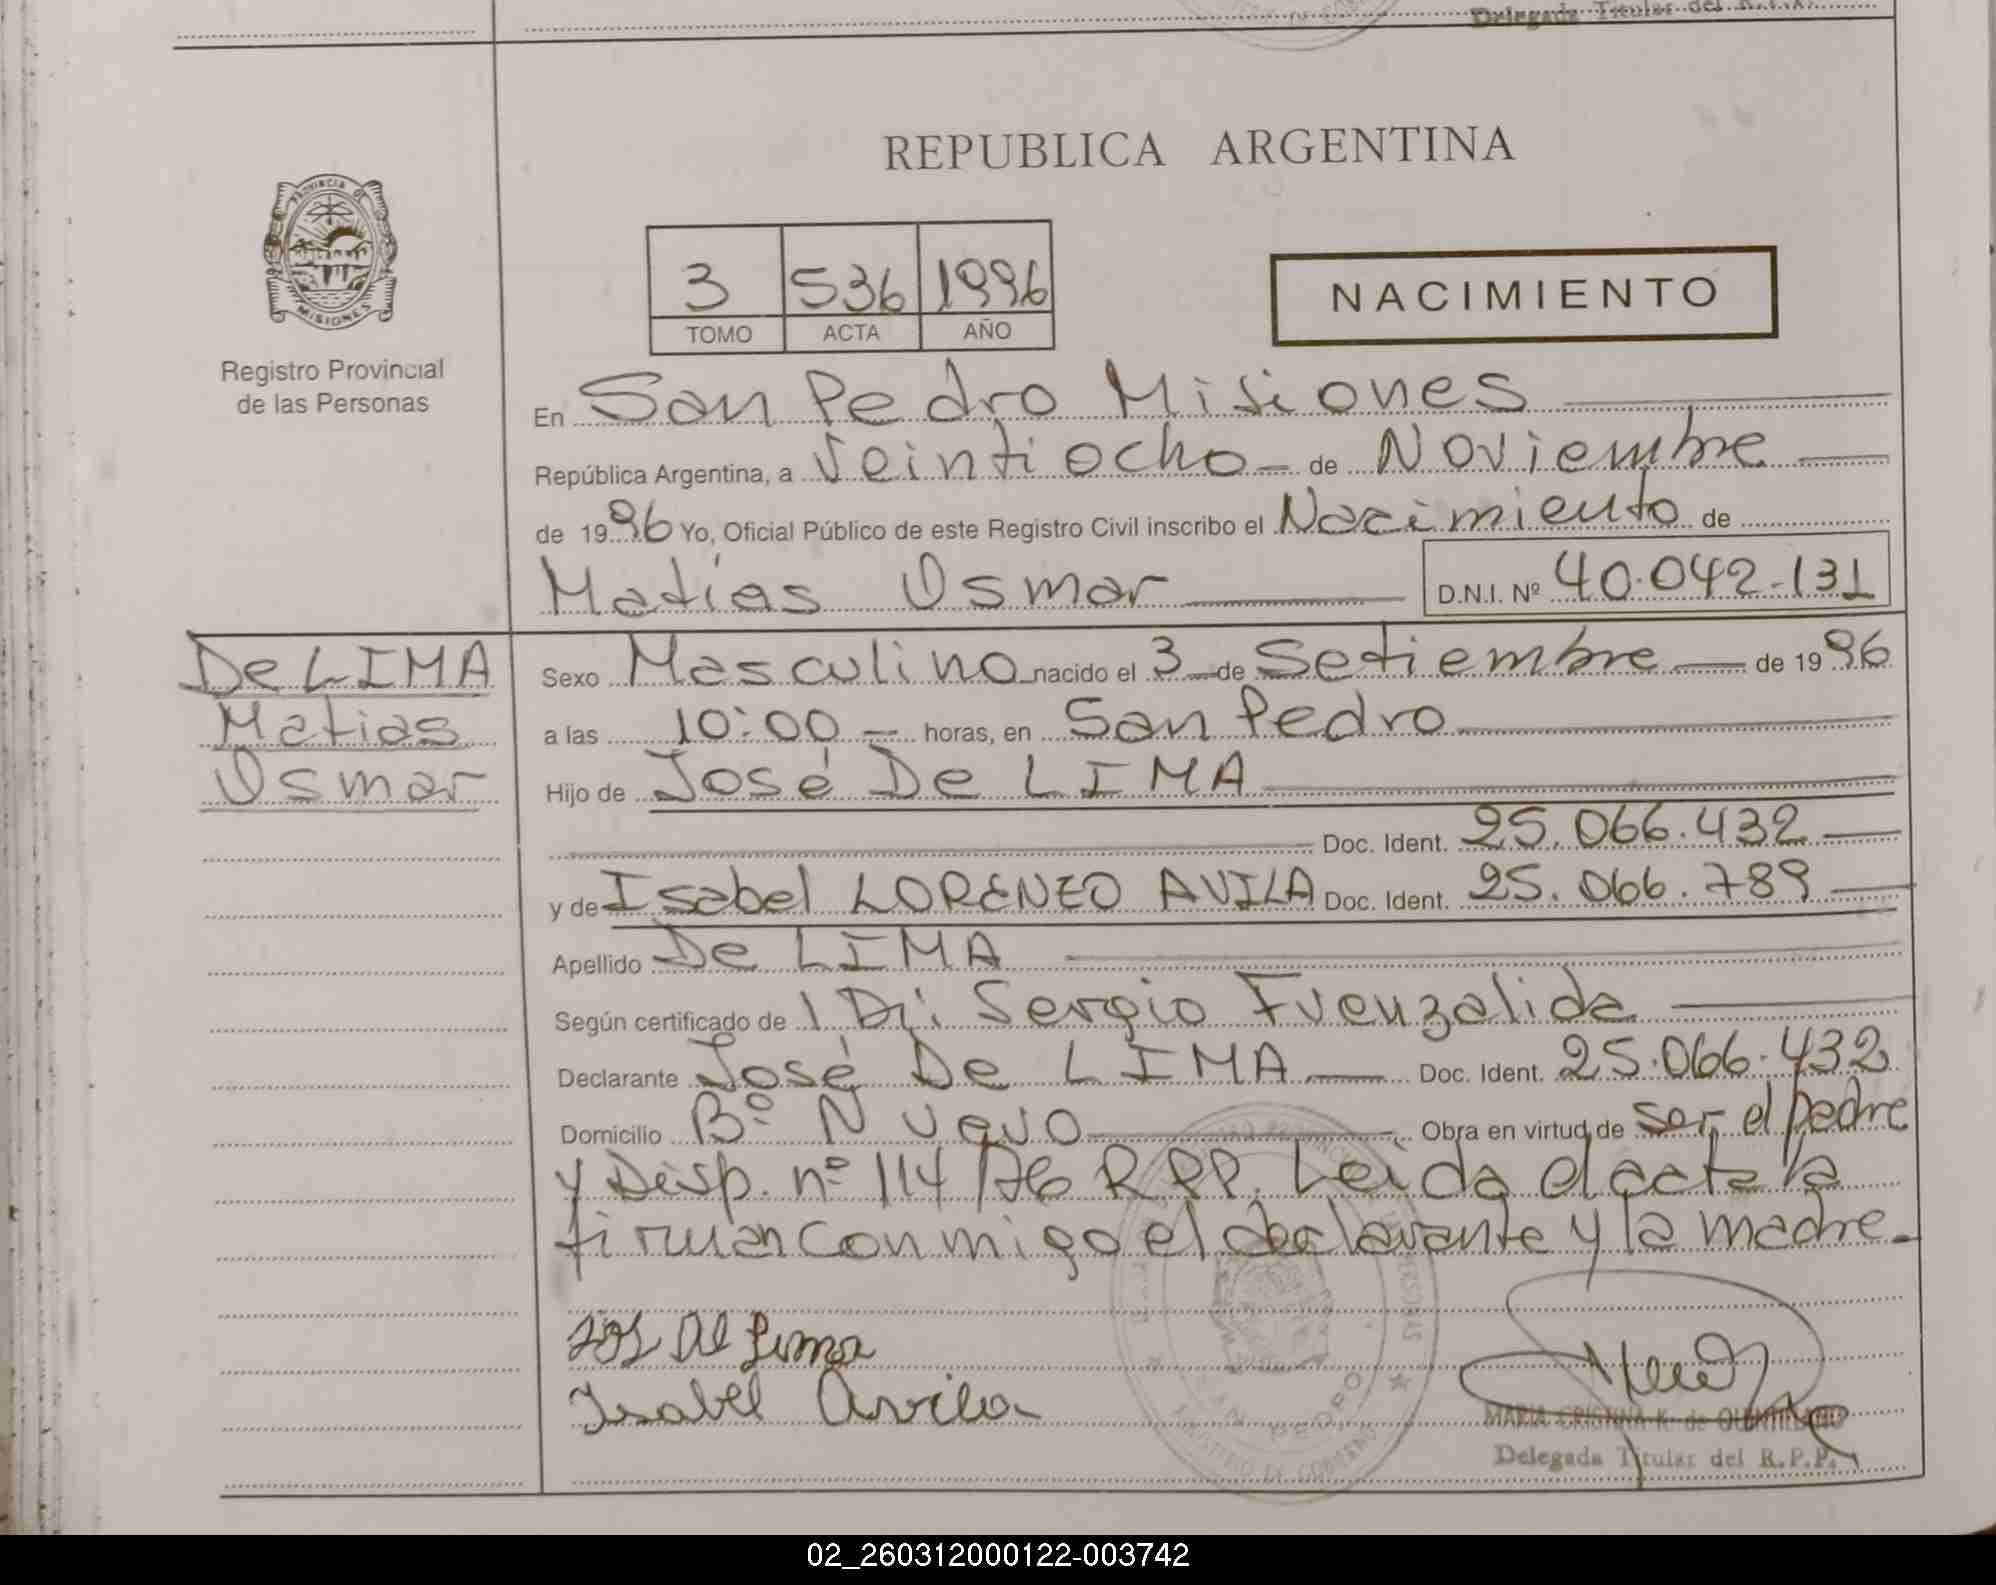 Delegada Titular del R.P.P.
REPUBLICA ARGENTINA
PROVINCIA DE
MISIONES
Registro Provincial
de las Personas
3 536 1996
TOMO ACTA AÑO
NACIMIENTO
En San Pedro Misiones
República Argentina, a Veintiocho - de Noviembre
de 1996 Yo, Oficial Público de este Registro Civil inscribo el Nacimiento de
Matías Osmar D.N.I. Nº 40.042.131
De LIMA
Matias
Osmar
Sexo Masculino nacido el 3 de Setiembre de 1996
a las 10:00 - horas, en San Pedro
Hijo de José De LIMA
Doc. Ident. 25.066.432
y de Isabel LORENZO AVILA Doc. Ident. 25.066.789
Apellido De LIMA
Según certificado de 1 Dr: Sergio Fuenzalida
Declarante José De LIMA Doc. Ident. 25.066.432
Domicilio Bº Nuevo Obra en virtud de ser el padre
y Disp. nº 114/76 R.P.P. Leida el acta la
firman conmigo el declarante y la madre.-
De Lima
Isabel Avila
SAN PEDRO
MINISTERIO DE GOBIERNO
MARIA CRISTINA K. de
Delegada Titular del R.P.P.
02_260312000122-003742